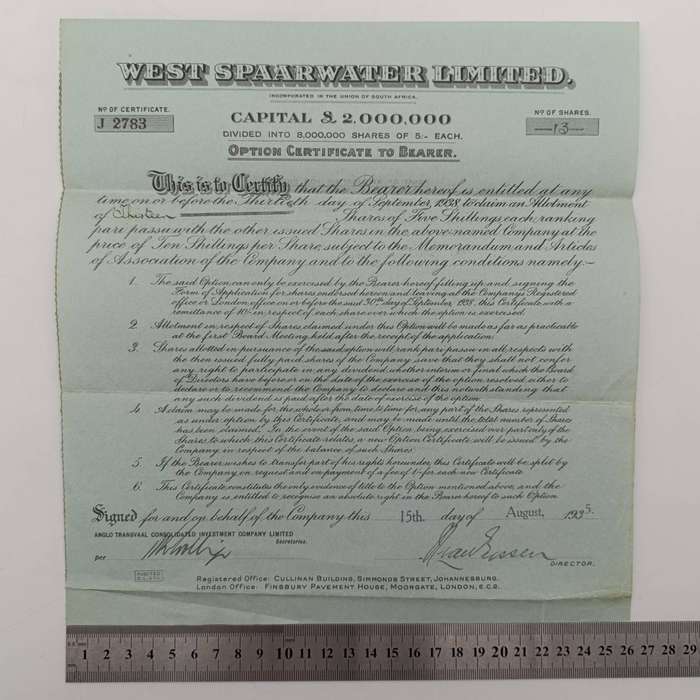 WEST SPAARWATER LIMITED.
INCORPORATED IN THE UNION OF SOUTH AFRICA.
No OF CERTIFICATE.
J 2783
CAPITAL £ 2,000,000
No OF SHARES.
—13—
DIVIDED INTO 8,000,000 SHARES OF 5/- EACH.
OPTION CERTIFICATE TO BEARER.
This is to Certify that the Bearer hereof is entitled at any
time on or before the Thirtieth day of September, 1938, to claim an Allotment
of Thirteen Shares of Five Shillings each, ranking
pari passu with the other issued Shares in the above-named Company at the
price of Ten Shillings per Share, subject to the Memorandum and Articles
of Association of the Company and to the following conditions namely:—
1. The said Option can only be exercised by the Bearer hereof filling up and signing the
Form of Application for shares endorsed hereon and leaving at the Company's Registered
office or London office on or before the said 30th day of September, 1938, this Certificate with a
remittance of 10/- in respect of each share over which the option is exercised.
2. Allotment in respect of Shares claimed under this Option will be made as far as practicable
at the first Board Meeting held after the receipt of the application.
3. Shares allotted in pursuance of the said option will rank pari passu in all respects with
the then issued fully paid shares of the Company save that they shall not confer
any right to participate in any dividend whether interim or final which the Board
of Directors have before or on the date of the exercise of the option resolved either to
declare or to recommend the Company to declare and this notwithstanding that
any such dividend is paid after the date of exercise of the option.
4. A claim may be made for the whole or from time to time for any part of the Shares represented
as under option by this Certificate, and may be made until the total number of Shares
has been claimed. In the event of the said Option being exercised over part only of the
Shares to which this Certificate relates a new Option Certificate will be issued by the
Company in respect of the balance of such Shares.
5. If the Bearer wishes to transfer part of his rights hereunder, this Certificate will be split by
the Company on request and on payment of a fee of 1/- for each new Certificate.
6. This Certificate constitutes the only evidence of title to the Option mentioned above, and the
Company is entitled to recognise an absolute right in the Bearer hereof to such Option.
Signed for and on behalf of the Company this 15th day of August, 1935.
ANGLO TRANSVAAL CONSOLIDATED INVESTMENT COMPANY LIMITED
Secretaries.
per
DIRECTOR.
Registered Office: CULLINAN BUILDING, SIMMONDS STREET, JOHANNESBURG.
London Office: FINSBURY PAVEMENT HOUSE, MOORGATE, LONDON, E.C.2.
1 2 3 4 5 6 7 8 9 10 11 12 13 14 15 16 17 18 19 20 21 22 23 24 25 26 27 28 29